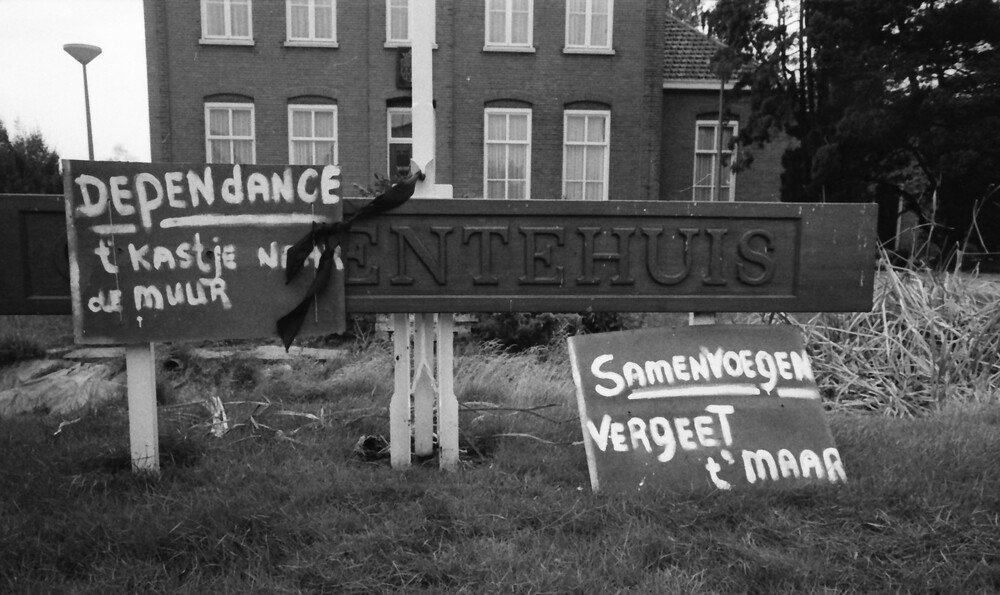 DEPENdANCE
t' KASTJE NAAR
de MUUR
ENTEHUIS
SAMENVOEGEN
VERGEET
t' MAAR